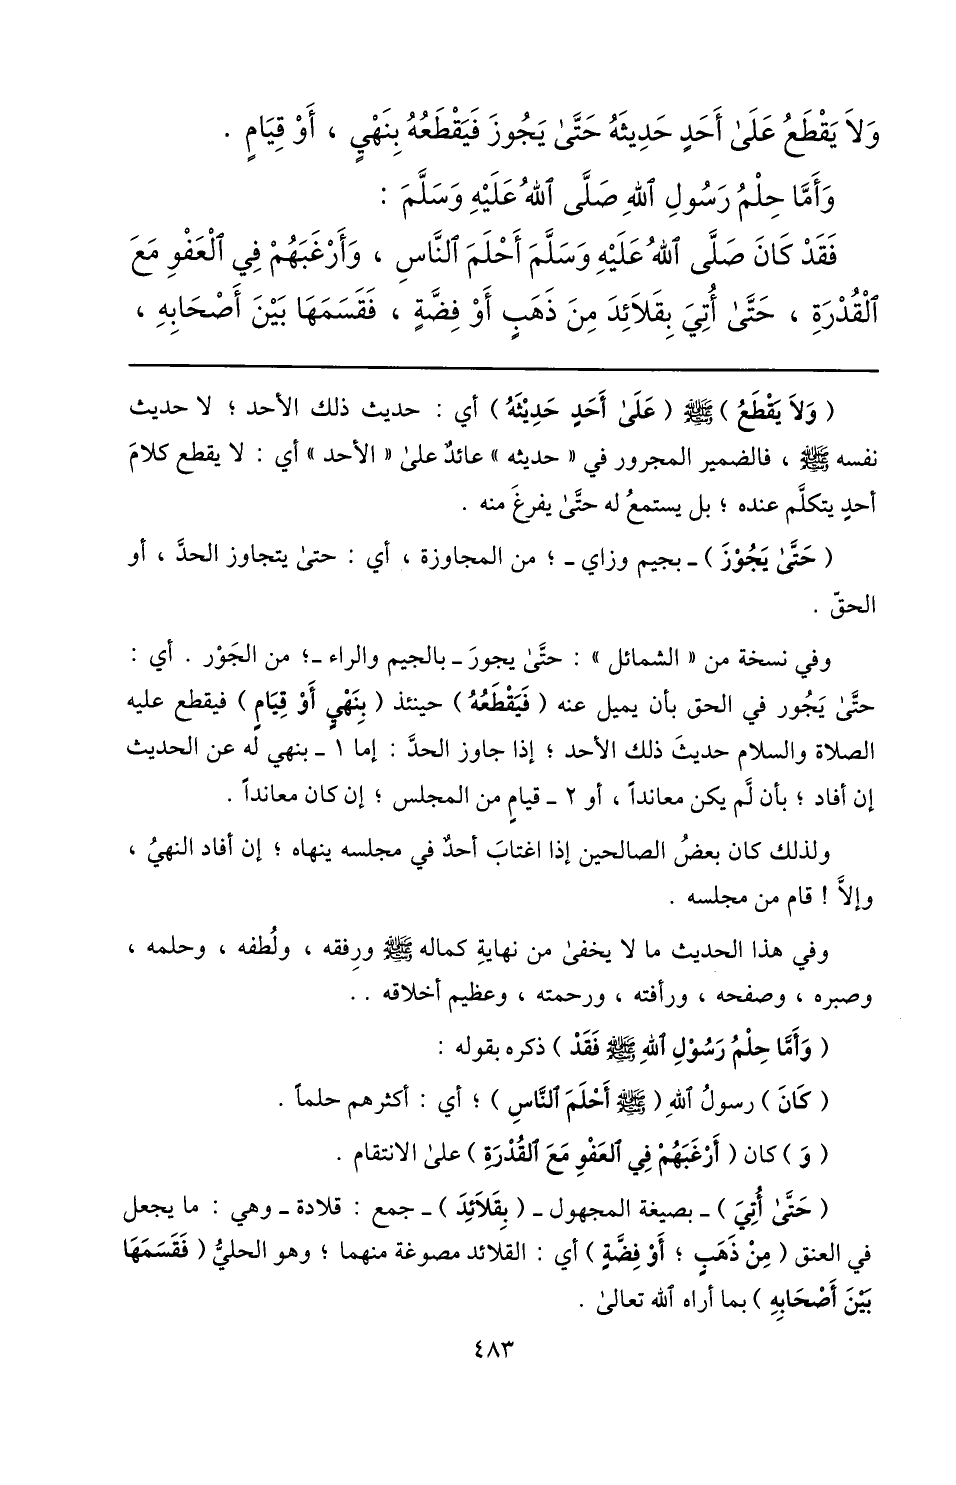 وَلاَ يَقْطَعُ عَلَىٰ أَحَدٍ حَدِيثَهُ حَتَّىٰ يَجُوزَ فَيَقْطَعُهُ بِنَهْيٍ ، أَوْ قِيَامٍ .
وَأَمَّا حِلْمُ رَسُولِ ٱللهِ صَلَّى ٱللهُ عَلَيْهِ وَسَلَّمَ :
فَقَدْ كَانَ صَلَّى ٱللهُ عَلَيْهِ وَسَلَّمَ أَحْلَمَ ٱلنَّاسِ ، وَأَرْغَبَهُمْ فِي ٱلْعَفْوِ مَعَ
ٱلْقُدْرَةِ ، حَتَّىٰ أُتِيَ بِقَلاَئِدَ مِنَ ذَهَبٍ أَوْ فِضَّةٍ ، فَقَسَمَهَا بَيْنَ أَصْحَابِهِ ،
( وَلاَ يَقْطَعُ ) ﷺ ( عَلَىٰ أَحَدٍ حَدِيْثَهُ ) أي : حديث ذلك الأحد ؛ لا حديث
نفسه ﷺ ، فالضمير المجرور في « حديثه » عائدٌ علىٰ « الأحد » أي : لا يقطع كلامَ
أحدٍ يتكلَّم عنده ؛ بل يستمعُ له حتَّىٰ يفرغَ منه .
( حَتَّىٰ يَجُوْزَ ) ـ بجيم وزاي ـ ؛ من المجاوزة ، أي : حتىٰ يتجاوز الحدَّ ، أو
الحقّ .
وفي نسخة من « الشمائل » : حتَّىٰ يجورَ ـ بالجيم والراء ـ ؛ من الجَوْر . أي :
حتَّىٰ يَجُور في الحق بأن يميل عنه ( فَيَقْطَعُهُ ) حينئذ ( بِنَهْيٍ أَوْ قِيَامٍ ) فيقطع عليه
الصلاة والسلام حديثَ ذلك الأحد ؛ إذا جاوز الحدَّ : إما ١ ـ بنهي له عن الحديث
إن أفاد ؛ بأن لَّم يكن معانداً ، أو ٢ ـ قيامٍ من المجلس ؛ إن كان معانداً .
ولذلك كان بعضُ الصالحين إذا اغتابَ أحدٌ في مجلسه ينهاه ؛ إن أفاد النهيُ ،
وإلاَّ ! قام من مجلسه .
وفي هذا الحديث ما لا يخفىٰ من نهايةِ كماله ﷺ ورِفقه ، ولُطفه ، وحلمه ،
وصبره ، وصفحه ، ورأفته ، ورحمته ، وعظيم أخلاقه . .
( وَأَمَّا حِلْمُ رَسُوْلِ ٱللهِ ﷺ فَقَدْ ) ذكره بقوله :
( كَانَ ) رسولُ ٱللهِ ( ﷺ أَحْلَمَ ٱلنَّاسِ ) ؛ أي : أكثرهم حلماً .
( وَ ) كان ( أَرْغَبَهُمْ فِي ٱلعَفْوِ مَعَ ٱلقُدْرَةِ ) علىٰ الانتقام .
( حَتَّىٰ أُتِيَ ) ـ بصيغة المجهول ـ ( بِقَلاَئِدَ ) ـ جمع : قلادة ـ وهي : ما يجعل
في العنق ( مِنْ ذَهَبٍ ؛ أَوْ فِضَّةٍ ) أي : القلائد مصوغة منهما ؛ وهو الحليُّ ( فَقَسَمَهَا
بَيْنَ أَصْحَابِهِ ) بما أراه ٱلله تعالىٰ .
٤٨٣